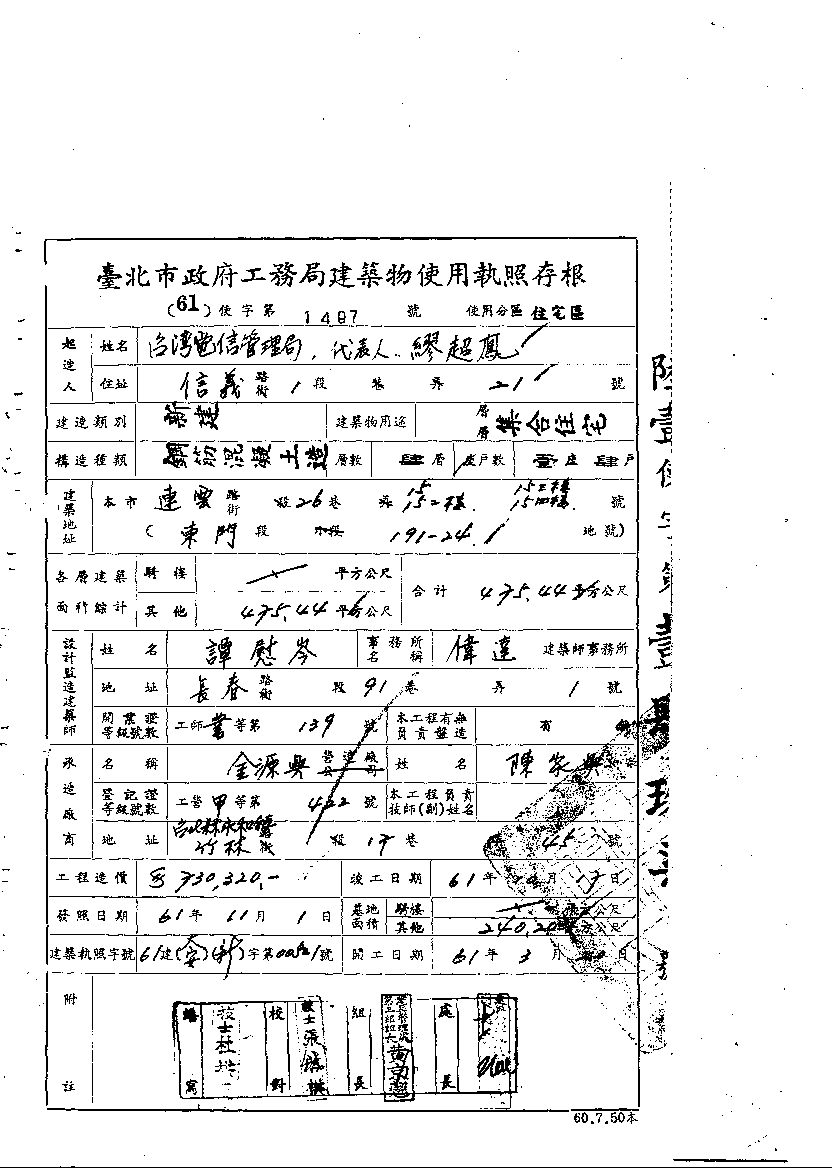 臺北市政府工務局建築物使用執照存根
(61)使字第 1487 號 使用分區 住宅區
起造人 姓名 台湾電信管理局,代表人、繆超鳳
住址 信義路街 1 段 巷 弄 21 號
建造類別 新建 建築物用途 層層 集合住宅
構造種類 鋼筋混凝土造 層數 肆層 座戶數 壹座肆戶
建築地址 本市 連雲路街 段 26 巷 弄 15 15二樓 15三樓 15四樓 號
(東門 段 小段 191-24.1 地號)
各層建築面積錄計 騎樓 平方公尺 合計 475.44 平方公尺
其他 475.44 平方公尺
設計監造建築師 姓名 譚慰岑 事務所名稱 偉達 建築師事務所
地址 長春路街 段 91 巷 弄 1 號
開業證等級號數 工師 業 等第 139 號 本工程有無負責監造 有
承造廠商 名稱 金源興 營造廠公司 姓名 陳家興
登記證等級號數 工營 甲 等第 422 號 本工程負責技師(副)姓名
地址 台北縣永和鎮竹林街 段 17 巷 45 號
工程造價 730,320.- 竣工日期 61年 10月 17日
發照日期 61年 11月 1日 基地面積 騎樓 平方公尺
其他 240.20 平方公尺
建築執照字號 61建(安)(新)字第0021號 開工日期 61年 3月 20日
附註
繕寫 技士杜 校對 技士張 組長 黃 處長
60.7.50本
陸壹使字第壹